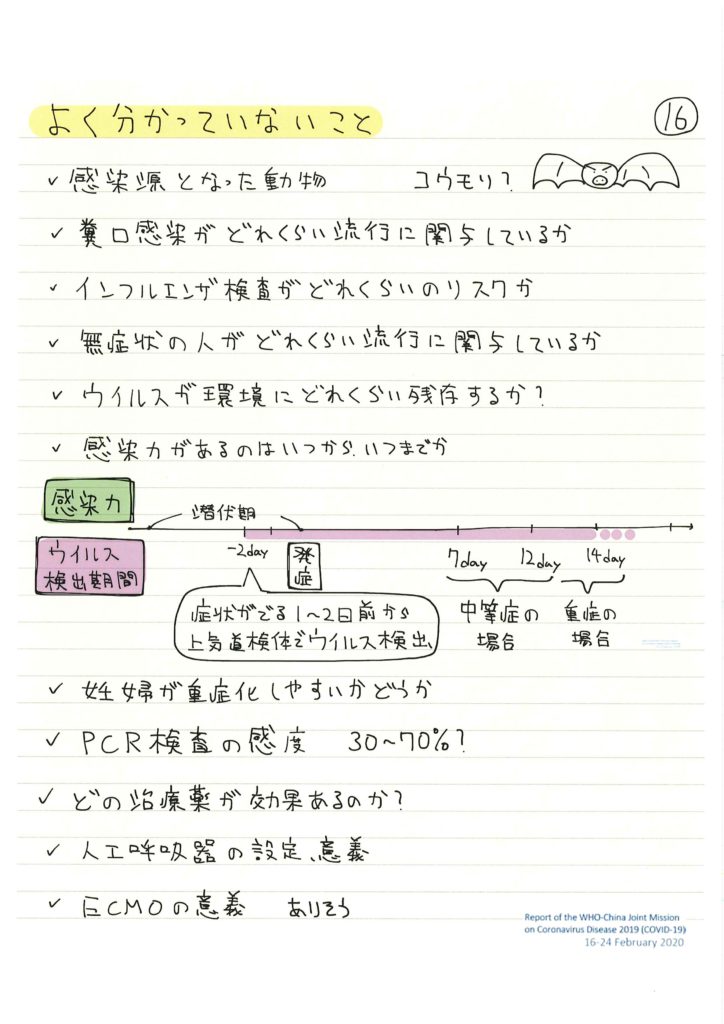 よく分かっていないこと
16
✓ 感染源となった動物 コウモリ?
✓ 糞口感染がどれくらい流行に関与しているか
✓ インフルエンザ検査がどれくらいのリスクか
✓ 無症状の人がどれくらい流行に関与しているか
✓ ウイルスが環境にどれくらい残存するか?
✓ 感染力があるのはいつから、いつまでか
感染力
潜伏期
ウイルス
検出期間
-2day
発症
7day
12day
14day
症状がでる1〜2日前から
上気道検体でウイルス検出、
中等症の
場合
重症の
場合
✓ 妊婦が重症化しやすいかどうか
✓ PCR検査の感度 30〜70%?
✓ どの治療薬が効果あるのか?
✓ 人工呼吸器の設定、意義
✓ ECMOの意義 ありそう
Report of the WHO-China Joint Mission
on Coronavirus Disease 2019 (COVID-19)
16-24 February 2020